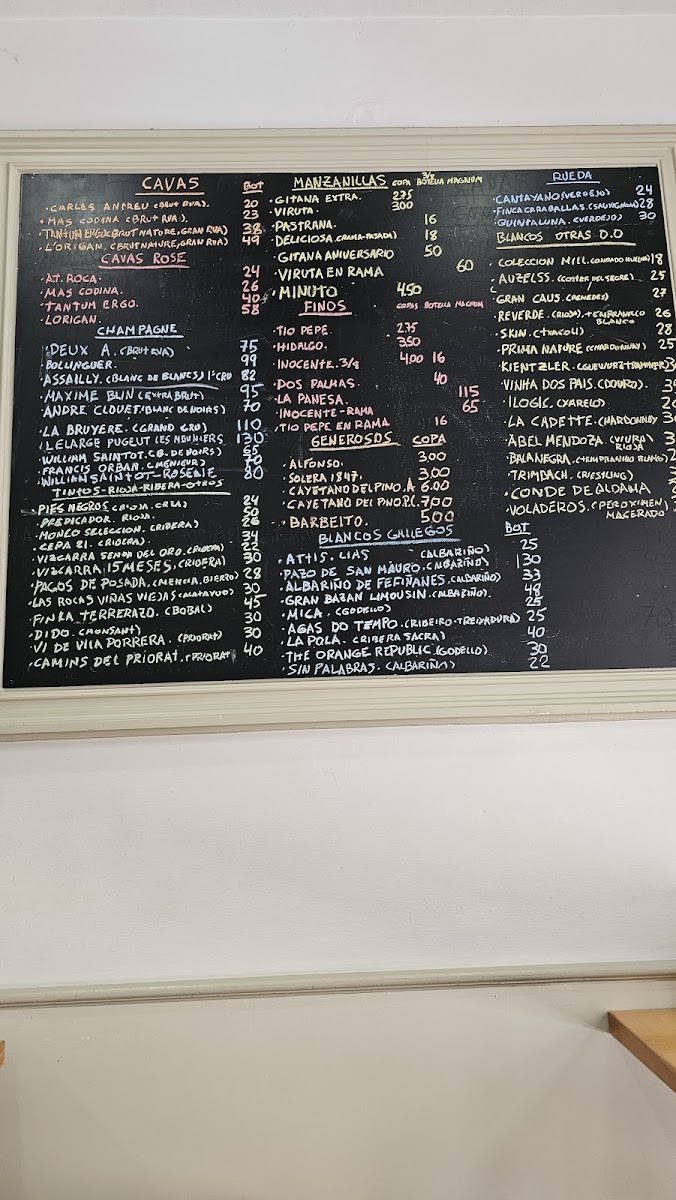 CAVAS BOT
· CARLES ANDREU (BRUT RVA). 20
· MAS CODINA (BRUT RVA). 23
· TANTUM ERGO (BRUT NATURE, GRAN RVA) 38
· L'ORIGAN. (BRUT NATURE, GRAN RVA) 49
CAVAS ROSE
· AT. ROCA. 24
· MAS CODINA. 26
· TANTUM ERGO. 40
· LORIGAN. 58
CHAMPAGNE
· DEUX A. (BRUT RVA) 75
BOLLINGUER. 99
· ASSAILLY. (BLANC DE BLANCS) 1º CRU 82
· MAXIME BLIN (EXTRA BRUT) 95
· ANDRE CLOUET (BLANC DE NOIRS) 70
· LA BRUYERE. (GRAND CRU) 110
· LELARGE PUGEUT LES MEUNIERS 130
· WILLIAM SAINTOT. (B. DE NOIRS) 65
· FRANCIS ORBAN. (MENIEUR) 70
· WILLIAN SAINTOT-ROSEDIE 80
TINTOS-RIOJA-RIBERA-OTROS
· PIES NEGROS (RIOJA. CRZA) 24
· PREDICADOR. RIOJA. 50
· MONCO SELECCION. (RIDERA) 26
· CEPA 21. (RIDERA). 34
· VIZCARRA SENDA DEL ORO. (RIDERA) 22
· VIZCARRA 15 MESES. (RIDERA) 30
· PAGOS DE POSADA. (MENCIA, BIERZO) 28
· LAS ROCAS VIÑAS VIEJAS (CALATAYUD) 30
· FINKA TERRERAZO. (BOBAL) 45
· DIDO. (MONSANT) 30
· VI DE VILA PORRERA. (PRIORAT) 30
· CAMINS DEL PRIORAT. (PRIORAT) 40
MANZANILLAS COPA 3/8 BOTELLA MAGNUM
· GITANA EXTRA. 275
· VIRUTA. 300
· PASTRANA. 16
· DELICIOSA. (RAMA-PASADA) 18
· GITANA ANIVERSARIO 50
· VIRUTA EN RAMA 60
· MINUTO 450
FINOS COPAS BOTELLA MAGNUM
· TIO PEPE. 275
· HIDALGO. 350
· INOCENTE. 3/8 4,00 16
· DOS PALMAS. 40
· LA PANESA. 115
· INOCENTE-RAMA 65
· TIO PEPE EN RAMA 16
GENEROSOS COPA
· ALFONSO. 300
· SOLERA 1847. 3,00
· CAYETANO DEL PINO. A 6.00
· CAYETANO DEL PINO P.C. 7,00
· BARBEITO. 5,00
BLANCOS GALLEGOS
· ATTIS. LIAS (ALBARIÑO) 25
· PAZO DE SAN MAURO. (ALBARIÑO) 30
· ALBARIÑO DE FEFIÑANES. (ALBARIÑO) 33
· GRAN BAZAN LIMOUSIN. (ALBARIÑO). 48
· MICA. (GODELLO) 25
· AGAS DO TEMPO. (RIBEIRO-TREIXADURA) 25
· LA POLA. (RIBERA SACRA) 40
· THE ORANGE REPUBLIC. (GODELLO) 30
· SIN PALABRAS. (ALBARIÑO) 22
BOT
RUEDA
· CANTAYANO (VERDEJO) 24
· FINCA CARABALLAS. (SAUVIGNON) 28
· QUINTALUNA. (VERDEJO) 30
BLANCOS OTRAS D.O
· COLECCION MILL. (CONDADO HUELVA) 18
· AUZELSS. (COSTER DEL SEGRE) 25
· GRAN CAUS. (PENEDES) 27
· REVERDE. (RIOJA). TEMPRANILLO BLANCO 26
· SKIN. (TXACOLI) 28
· PRIMA NATURE (CHARDONNAY) 25
· KIENTZLER. (GUEWURZTRAMMINER)
· VINHA DOS PAIS. (DOURO).
· ILOGIC. (XARELO)
· LA CADETTE. (CHARDONNAY)
· ABEL MENDOZA. (VIURA) RIOJA
· BALANEGRA. (TEMPRANILLO BLANCO)
· TRIMBACH. (RIESTLING)
· CONDE DE ALDAMA
· VOLADEROS. (PEROXIMEN) MACERADO